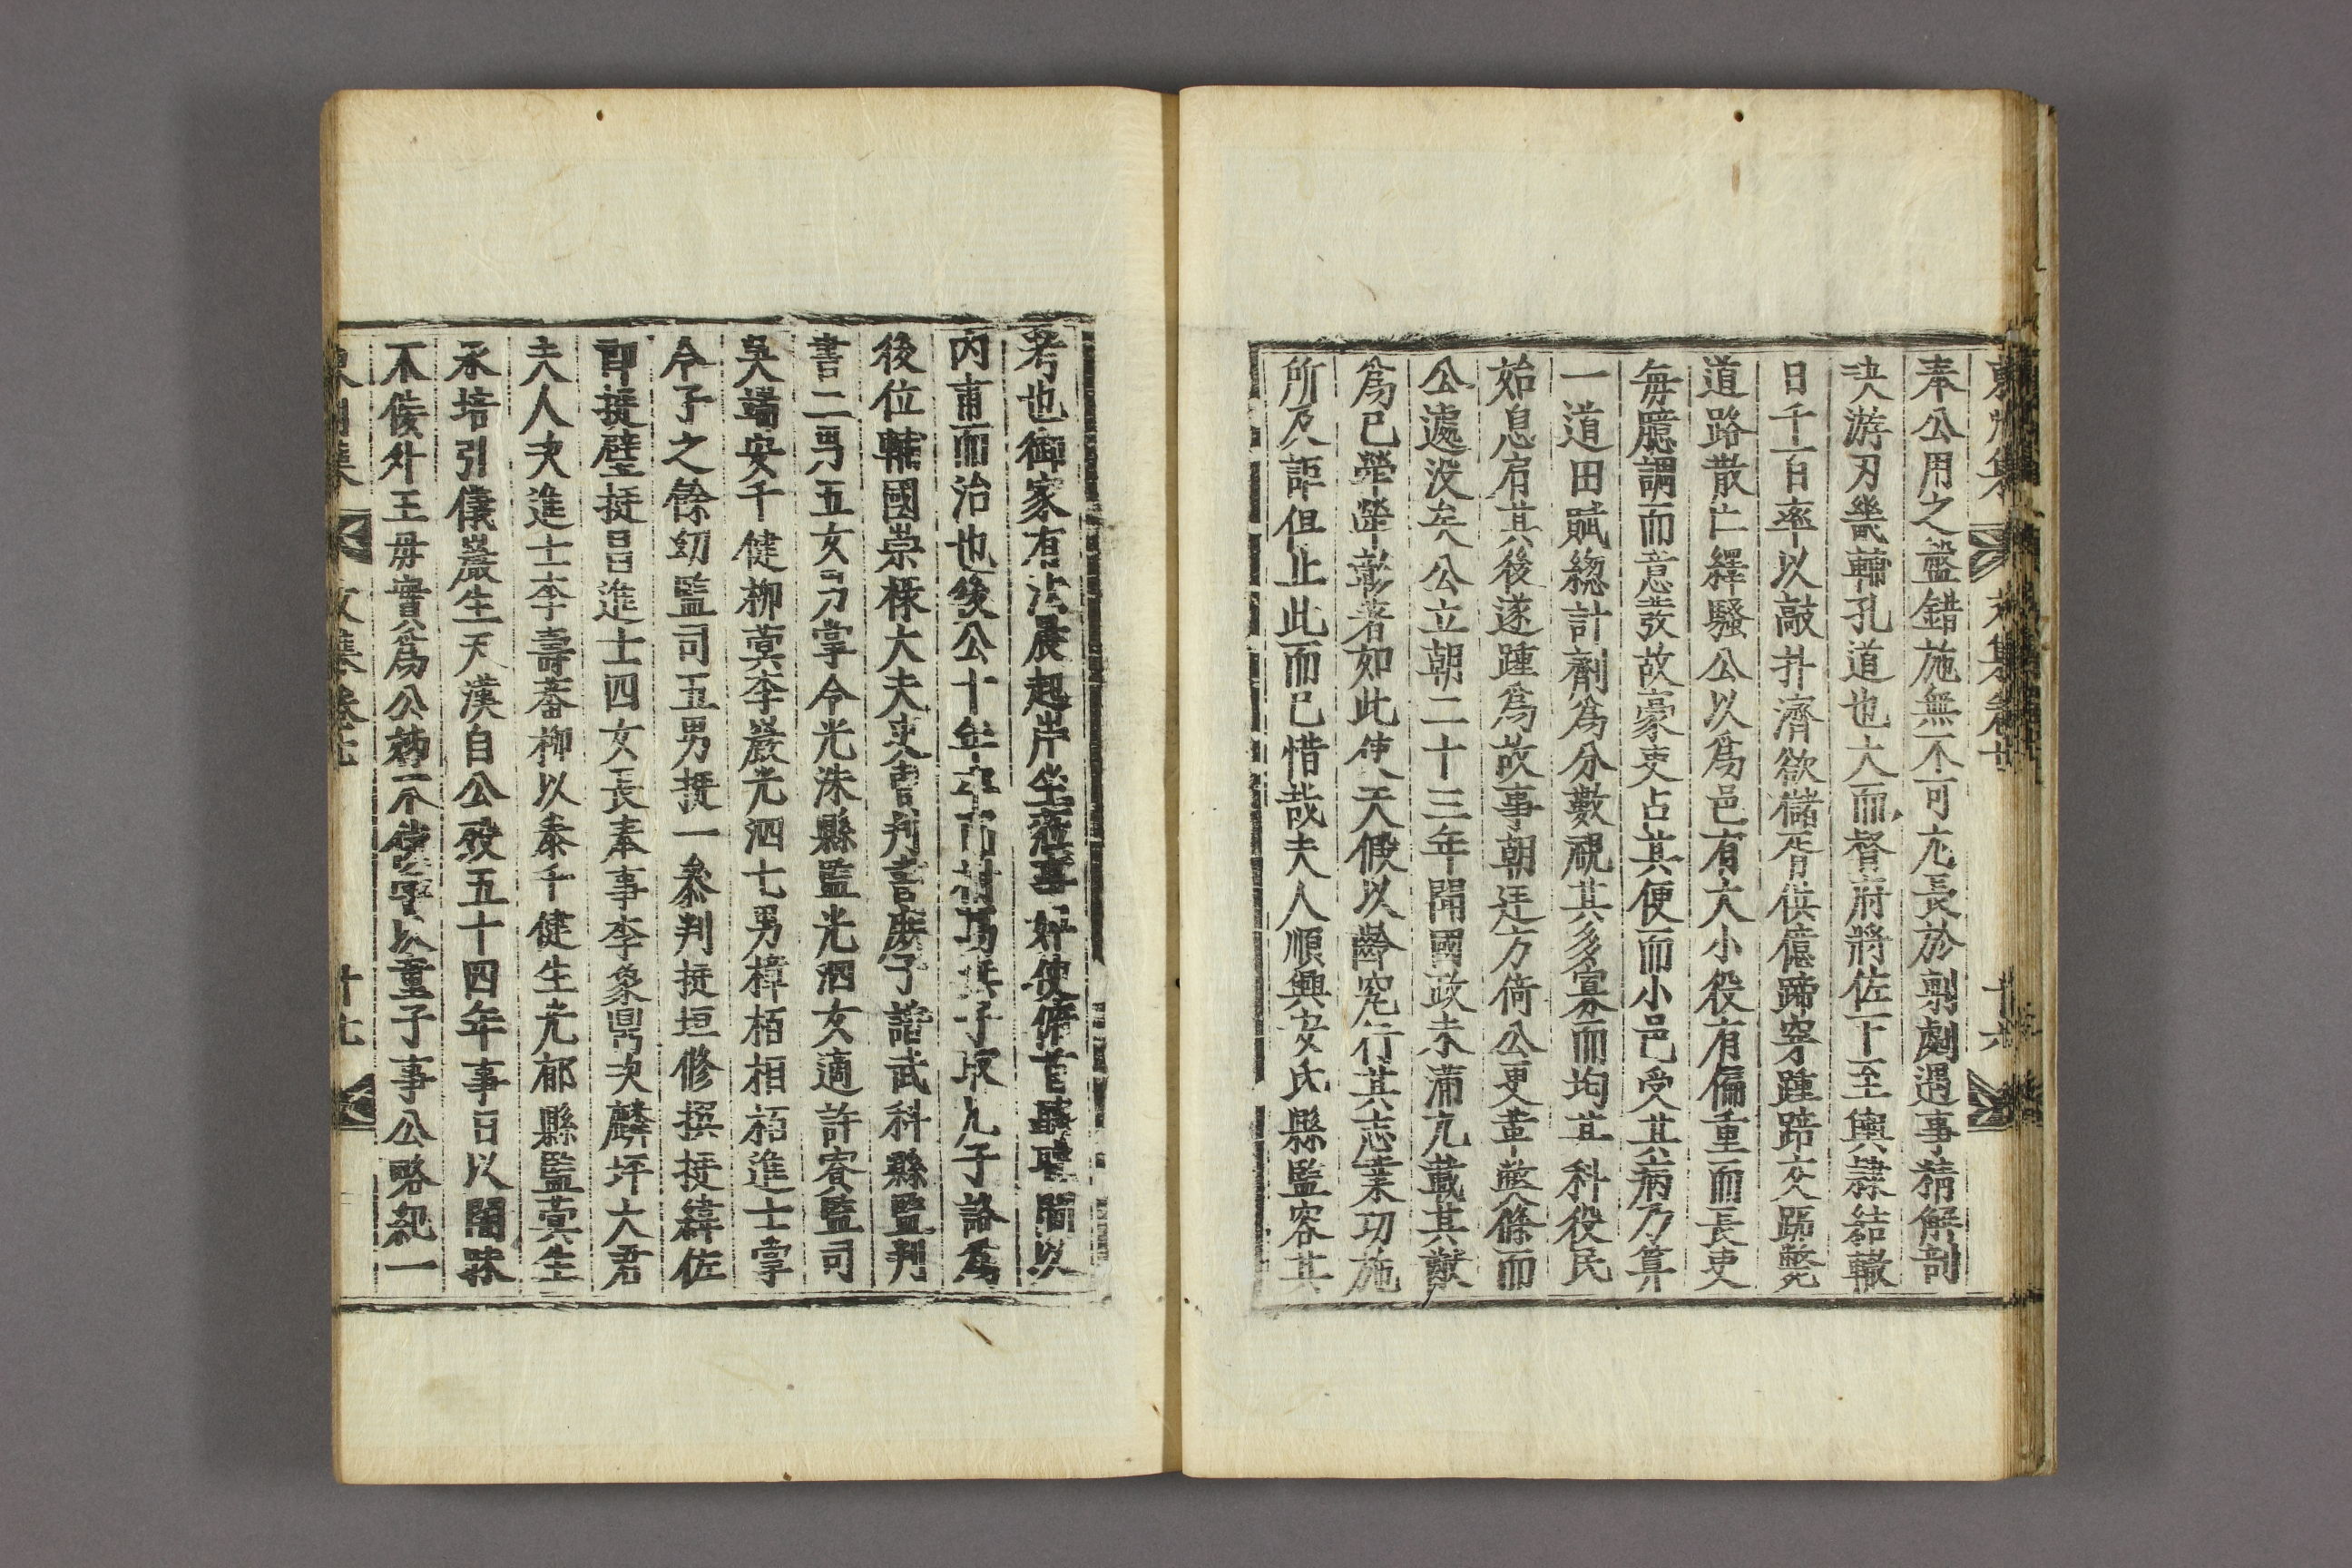 東州集 文集卷七 十六
奉公用之盤錯施無不可尤長於剸劇遇事精解剖
决游刃畿輔孔道也大而督府將佐下至輿隷結轍
日千百率以敲扑濟欲儲胥供億蹄穿踵踣交踣斃
道路散亡繹騷公以爲邑有大小役有偏重而長吏
每臆謂而意發故豪吏占其便而小邑受其病乃算
一道田賦緫計劑爲分數視其多寡而均其科役民
始息肩其後遂踵爲故事朝廷方倚公更革弊條而
公遽没矣公立朝二十三年聞國政未滿九載其猷
爲已犖犖彰著如此使天假以齡究行其志業功施
所及詎但止此而已惜哉夫人順興安氏縣監容其
考也御家有法晨起岸坐莅事奸使脩首聽聞以
內事而治也後公十年卒而祔焉無子取九子詻爲
後位輔國崇祿大夫吏曹判書庶子諮武科縣監判
書二男五女男掌令光洙縣監光泗女適許寮監司
吳端安千健柳蓂李嚴光泗七男樟栢相栯進士掌
令子之餘幼監司五男挺一參判挺垣修撰挺緯佐
郞挺璧挺昌進士四女長奉事李象鼎次麟坪大君
夫人次進士李壽蕃柳以泰千健生光郁縣監蓂生
承培引儀嚴生天漢自公歿五十四年事日以闊踈
不倿外王母實爲公姊不倿寧以童子事公略紀一
東州集 文集卷七 十七